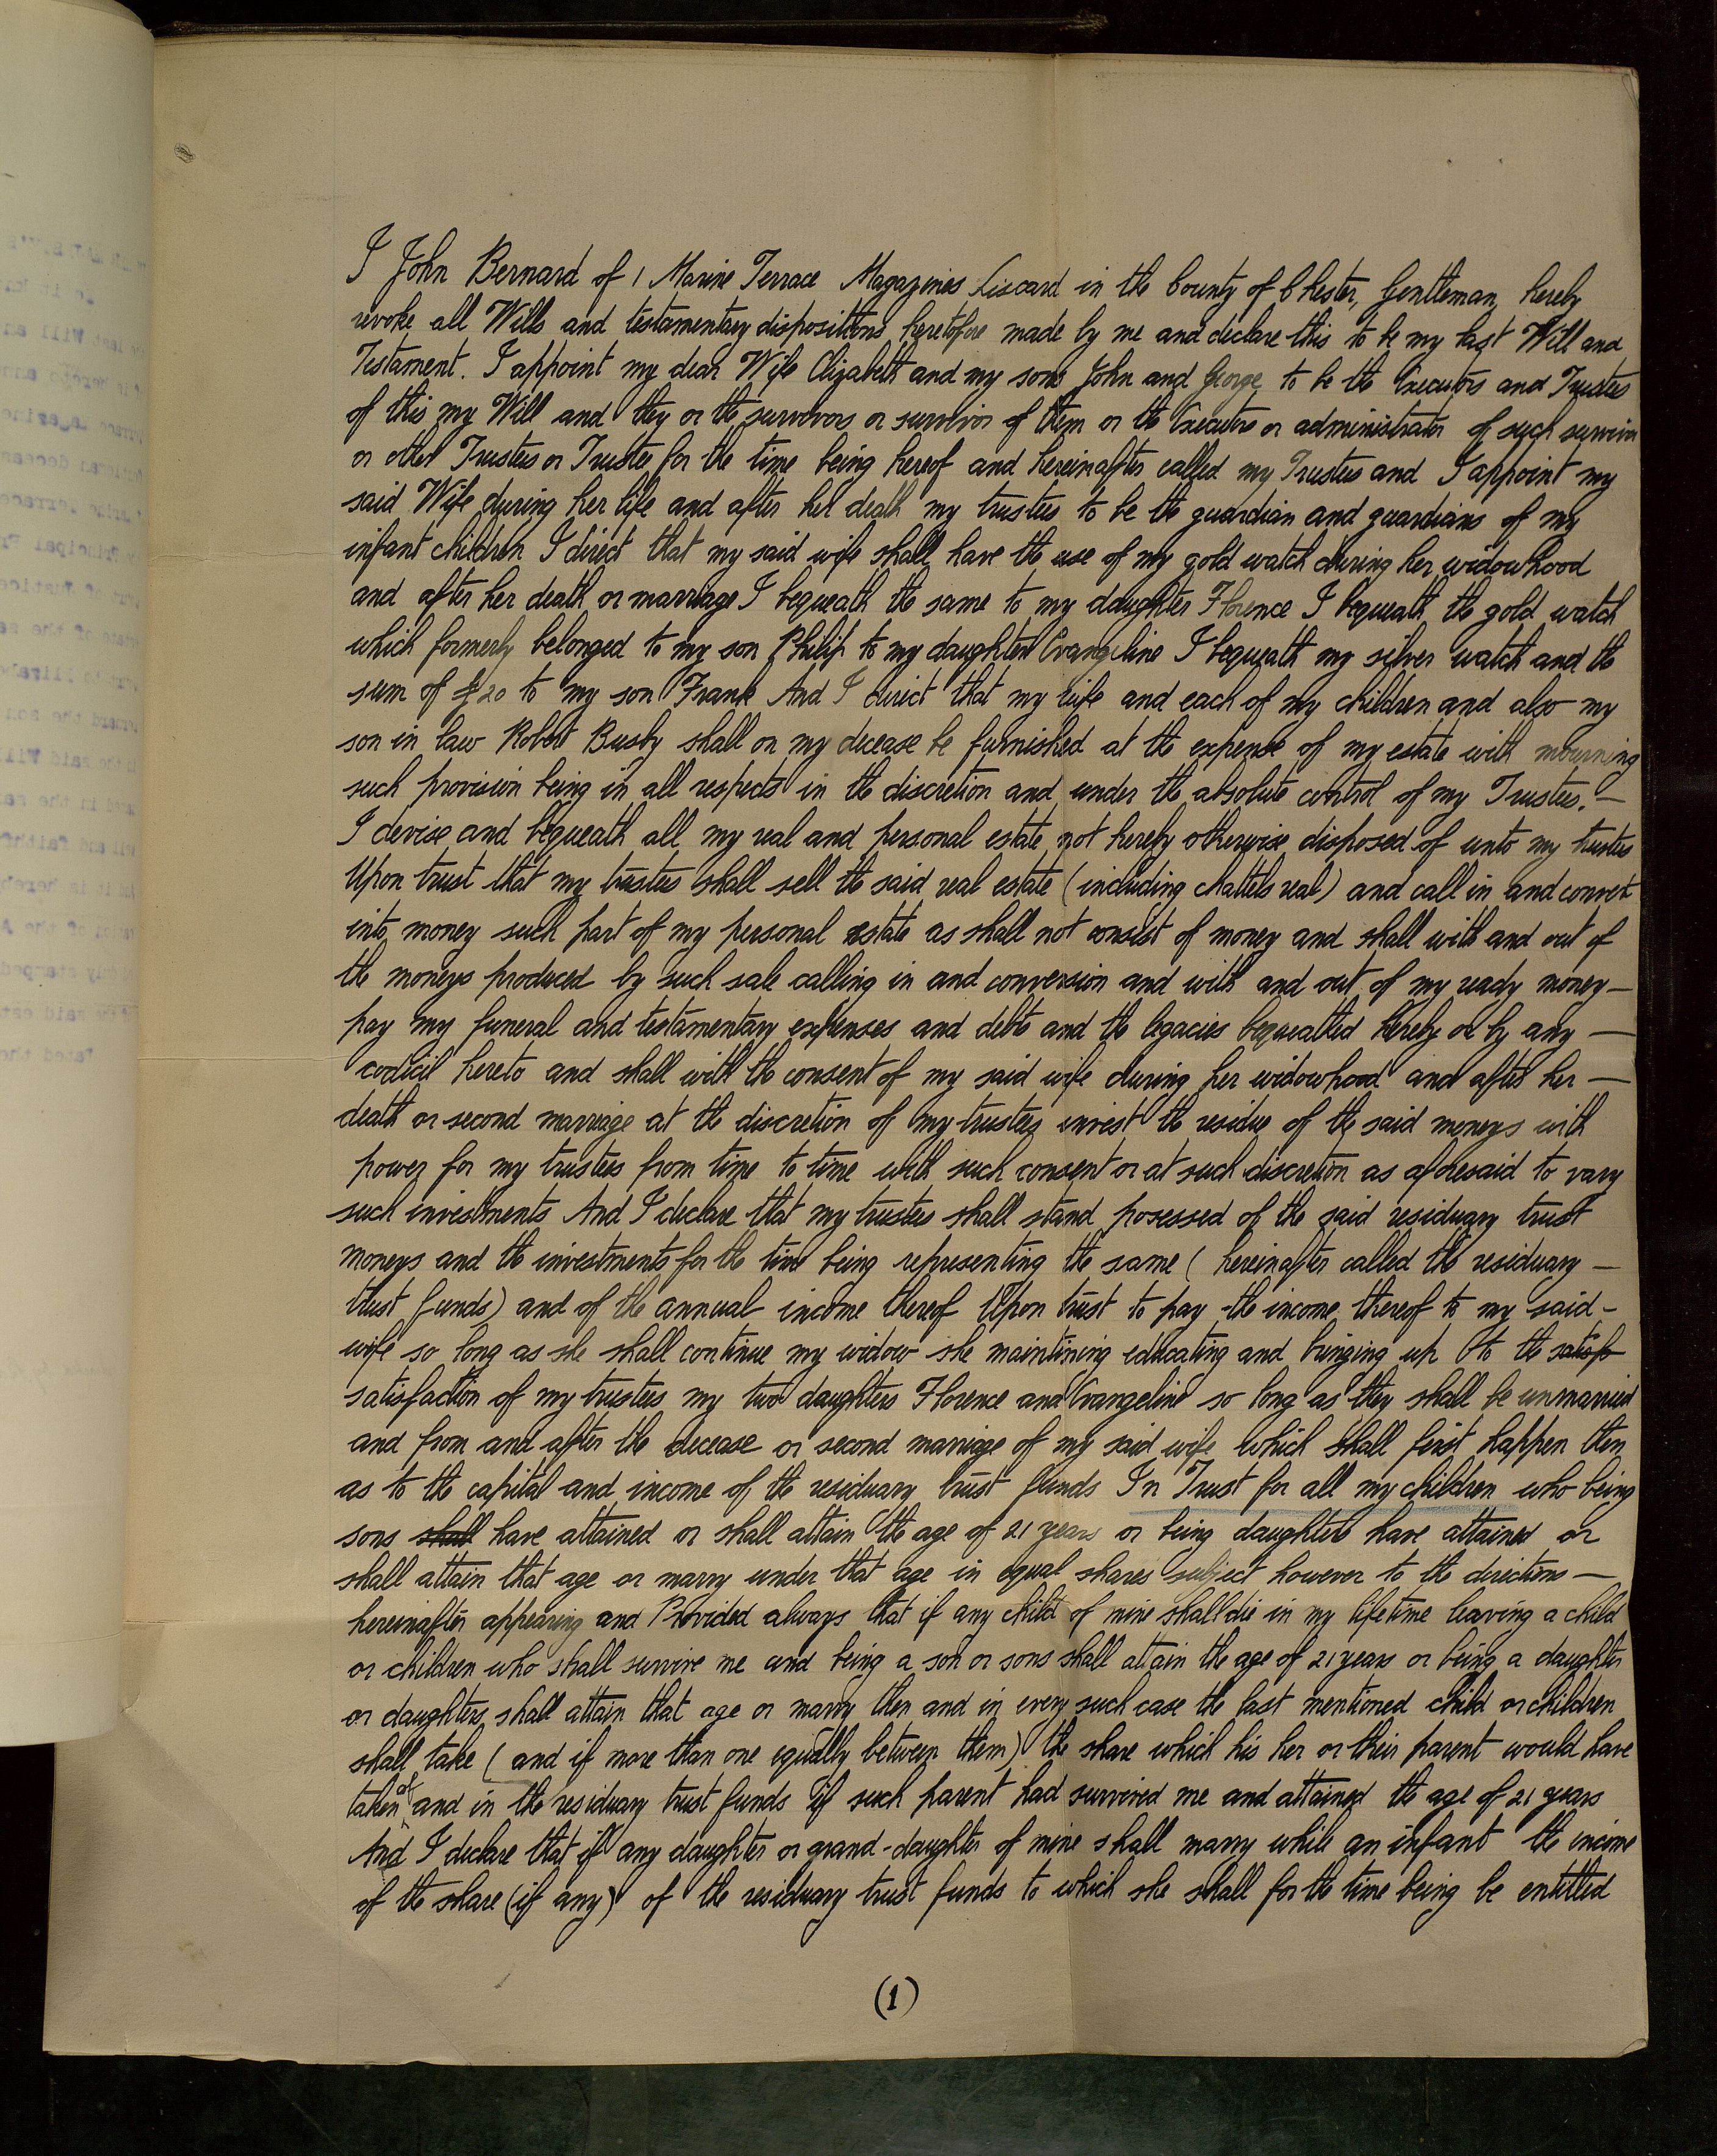 I John Bernard of 1 Marine Terrace Magazines Liscard in the County of Chester, Gentleman, hereby
revoke all Wills and testamentary dispositions heretofore made by me and declare this to be my last Will and
Testament. I appoint my dear Wife Elizabeth and my sons John and George to be the Executors and Trustees
of this my Will and they or the survivors or survivor of them or the Executors or administrators of such survivor
or other Trustees or Trustee for the time being hereof and hereinafter called my Trustees and I appoint my
said Wife during her life and after her death my trustees to be the guardian and guardians of my
infant children I direct that my said wife shall have the use of my gold watch during her widowhood
and after her death or marriage I bequeath the same to my daughter Florence I bequeath the gold watch
which formerly belonged to my son Philip to my daughter Evangeline I bequeath my silver watch and the
sum of £20 to my son Frank And I direct that my wife and each of my children and also my
son in law Robert Busby shall on my decease be furnished at the expense of my estate with mourning
such provision being in all respects in the discretion and under the absolute control of my Trustees. —
I devise and bequeath all my real and personal estate not hereby otherwise disposed of unto my trustees
Upon trust that my trustees shall sell the said real estate (including chattels real) and call in and convert
into money such part of my personal estate as shall not consist of money and shall with and out of
the moneys produced by such sale calling in and conversion and with and out of my ready money —
pay my funeral and testamentary expenses and debts and the legacies bequeathed hereby or by any —
codicil hereto and shall with the consent of my said wife during her widowhood and after her —
death or second marriage at the discretion of my trustees invest the residue of the said moneys with
power for my trustees from time to time with such consent or at such discretion as aforesaid to vary
such investments And I declare that my trustees shall stand posessed of the said residuary trust
moneys and the investments for the time being representing the same (hereinafter called the residuary —
trust funds) and of the annual income thereof Upon trust to pay the income thereof to my said —
wife so long as she shall continue my widow she maintining educating and bringing up to the satisf
satisfaction of my trustees my two daughters Florence and Evangeline so long as they shall be unmarried
and from and after the decease or second marriage of my said wife which shall first happen then
as to the capital and income of the residuary trust funds In Trust for all my children who being
sons shall have attained or shall attain the age of 21 years or being daughters have attained or
shall attain that age or marry under that age in equal shares subject however to the directions —
hereinafter appearing and Provided always that if any child of mine shall die in my lifetime leaving a child
or children who shall survive me and being a son or sons shall attain the age of 21 years or being a daughter
or daughters shall attain that age or marry then and in every such case the last mentioned child or children
shall take (and if more than one equally between them) the share which his her or their parent would have
taken of and in the residuary trust funds if such parent had survived me and attained the age of 21 years
And I declare that if any daughter or grand-daughter of mine shall marry while an infant the income
of the share (if any) of the residuary trust funds to which she shall for the time being be entitled
(1)